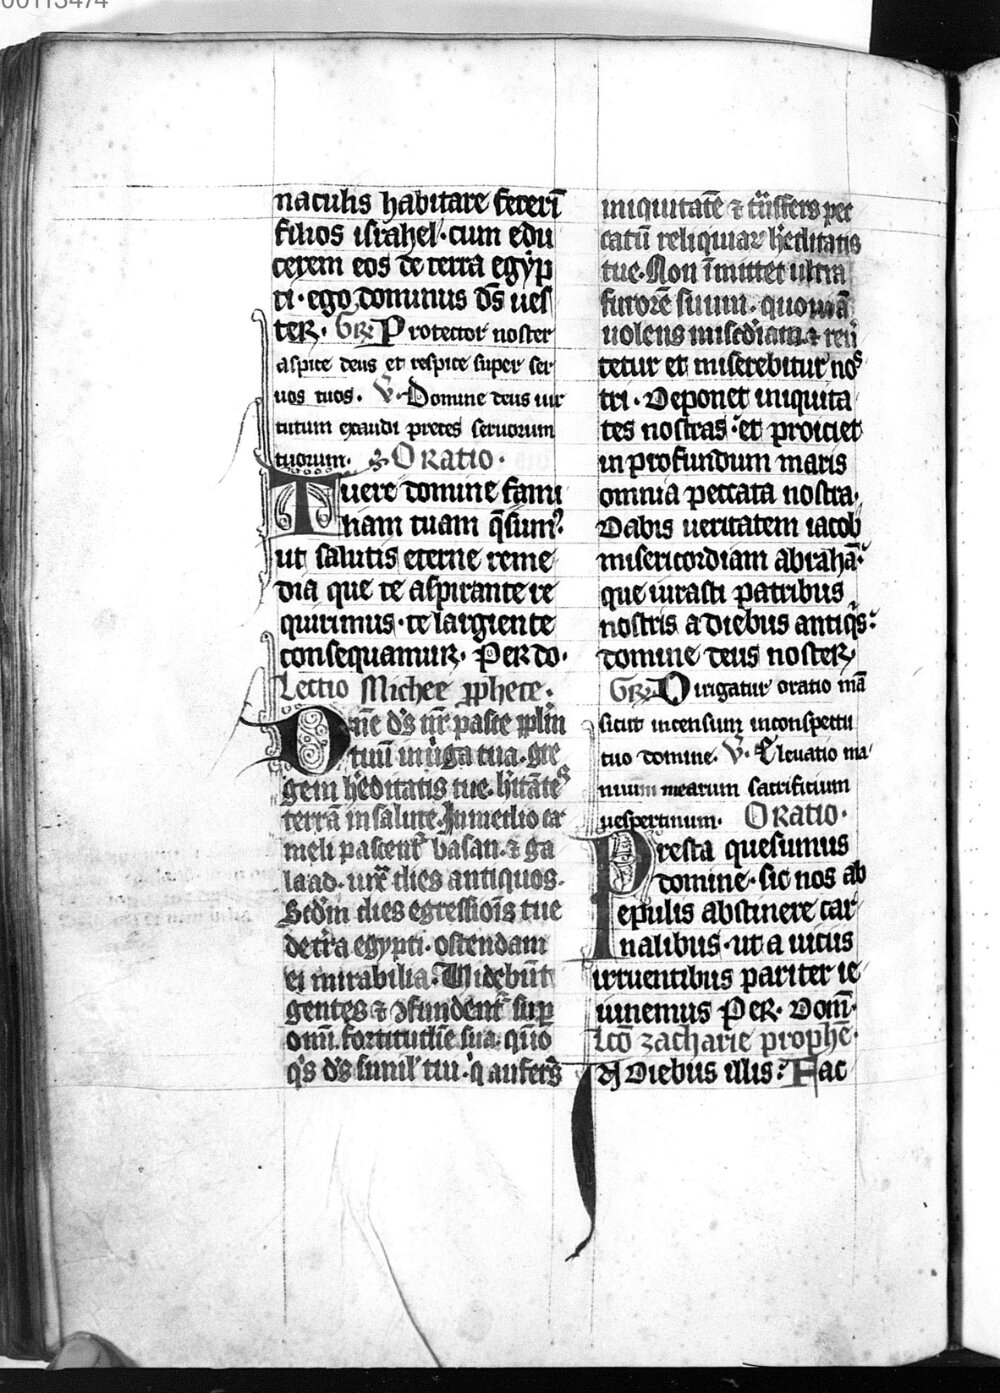 00113474
naculis habitare fecerī
filios israhel · cum edu
cerem eos de terra egyp
ti · ego dominus d̄s ues
ter. Gr̄ Protector noster
aspice deus et respice super ser
uos tuos. V̄. Domine deus uir
tutum exaudi preces seruorum
tuorum. Oratio.
Tuere domine fami
liam tuam q̄sum⁹.
ut salutis eterne reme
dia que te aspirante re
quirimus · te largiente
consequamur. Per do.
Lectio Michee p̄phete.
Dn̄e d̄s nr̄ pasce pp̄lm̄
tuū in uirga tua. gre
gem h̄editatis tue. h̄itātes
terrā in salute. In medio car
meli pascent̄ basan. ⁊ ga
laad. iux̄ dies antiquos.
Scd̄m dies egressiōis tue
de tr̄a egypti. ostendam
ei mirabilia. Widebūt
gentes ⁊ ↄfundent̄ sup
om̄i fortitudīe sua.
q̄s d̄s simil' tui. q̄ aufers
iniquitatē ⁊ trāsfers pec
catū reliquiar̄ h̄editatis
tue. Non īmittet ultra
furorē suum. quoniā
uolens mis̄cdiam. ⁊ reū
tetur et miserebitur nos
tri. Deponet iniquita
tes nostras. et proiciet
in profundum maris
omnia peccata nostra.
Dabis ueritatem iacob
misericordiam abrahā.
que iurasti patribus
nostris a diebus antiq̄s.
domine deus noster.
Gr̄ Dirigatur oratio mā
sicut incensum in conspectu
tuo domine. V̄. Eleuatio ma
nuum mearum sacrificium
uespertinum. Oratio.
Presta quesumus
domine. sic nos ab
epulis abstinere car
nalibus. ut a uiciis
irruentibus pariter ie
iunemus Per. Dom̄.
Lc̄o zacharie prophē.
In diebus illis. Fac